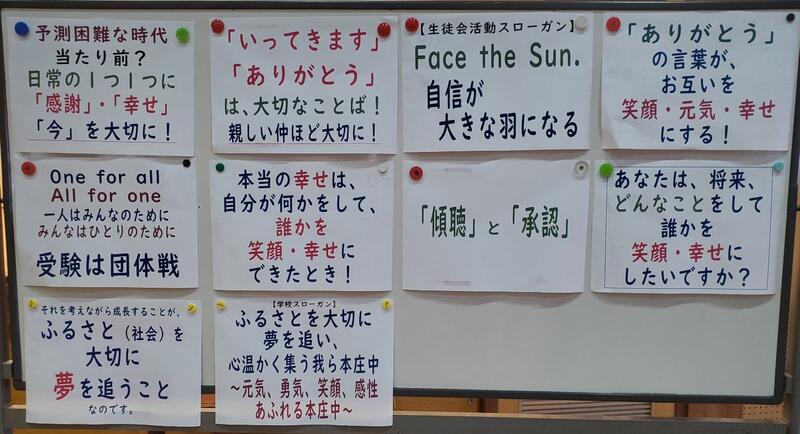 予測困難な時代
当たり前？
日常の１つ１つに
「感謝」・「幸せ」
「今」を大切に！
「いってきます」
「ありがとう」
は、大切なことば！
親しい仲ほど大切に！
【生徒会活動スローガン】
Face the Sun.
自信が
大きな羽になる
「ありがとう」
の言葉が、
お互いを
笑顔・元気・幸せ
にする！
One for all
All for one
一人はみんなのために
みんなはひとりのために
受験は団体戦
本当の幸せは、
自分が何かをして、
誰かを
笑顔・幸せに
できたとき！
「傾聴」と「承認」
あなたは、将来、
どんなことをして
誰かを
笑顔・幸せに
したいですか？
それを考えながら成長することが、
ふるさと（社会）を
大切に
夢を追うこと
なのです。
【学校スローガン】
ふるさとを大切に
夢を追い、
心温かく集う我ら本庄中
～元気、勇気、笑顔、感性
あふれる本庄中～